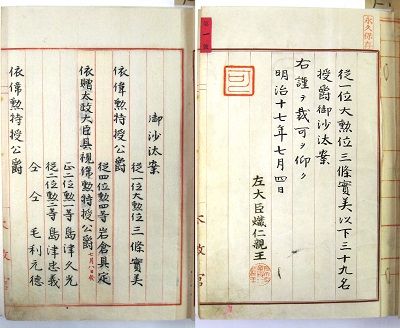 永久保存
從一位大勲位三條實美以下三十九名
授爵御沙汰案
右謹テ裁可ヲ仰ク
明治十七年七月四日
左大臣熾仁親王
可
第一號
御沙汰案
從一位大勲位三條實美
依偉勲特授公爵
從四位勲四等岩倉具定
依贈太政大臣具視偉勲特授公爵
正二位勲一等島津久光
從三位勲二等島津忠義
仝仝毛利元徳
依偉勲特授公爵
太政官